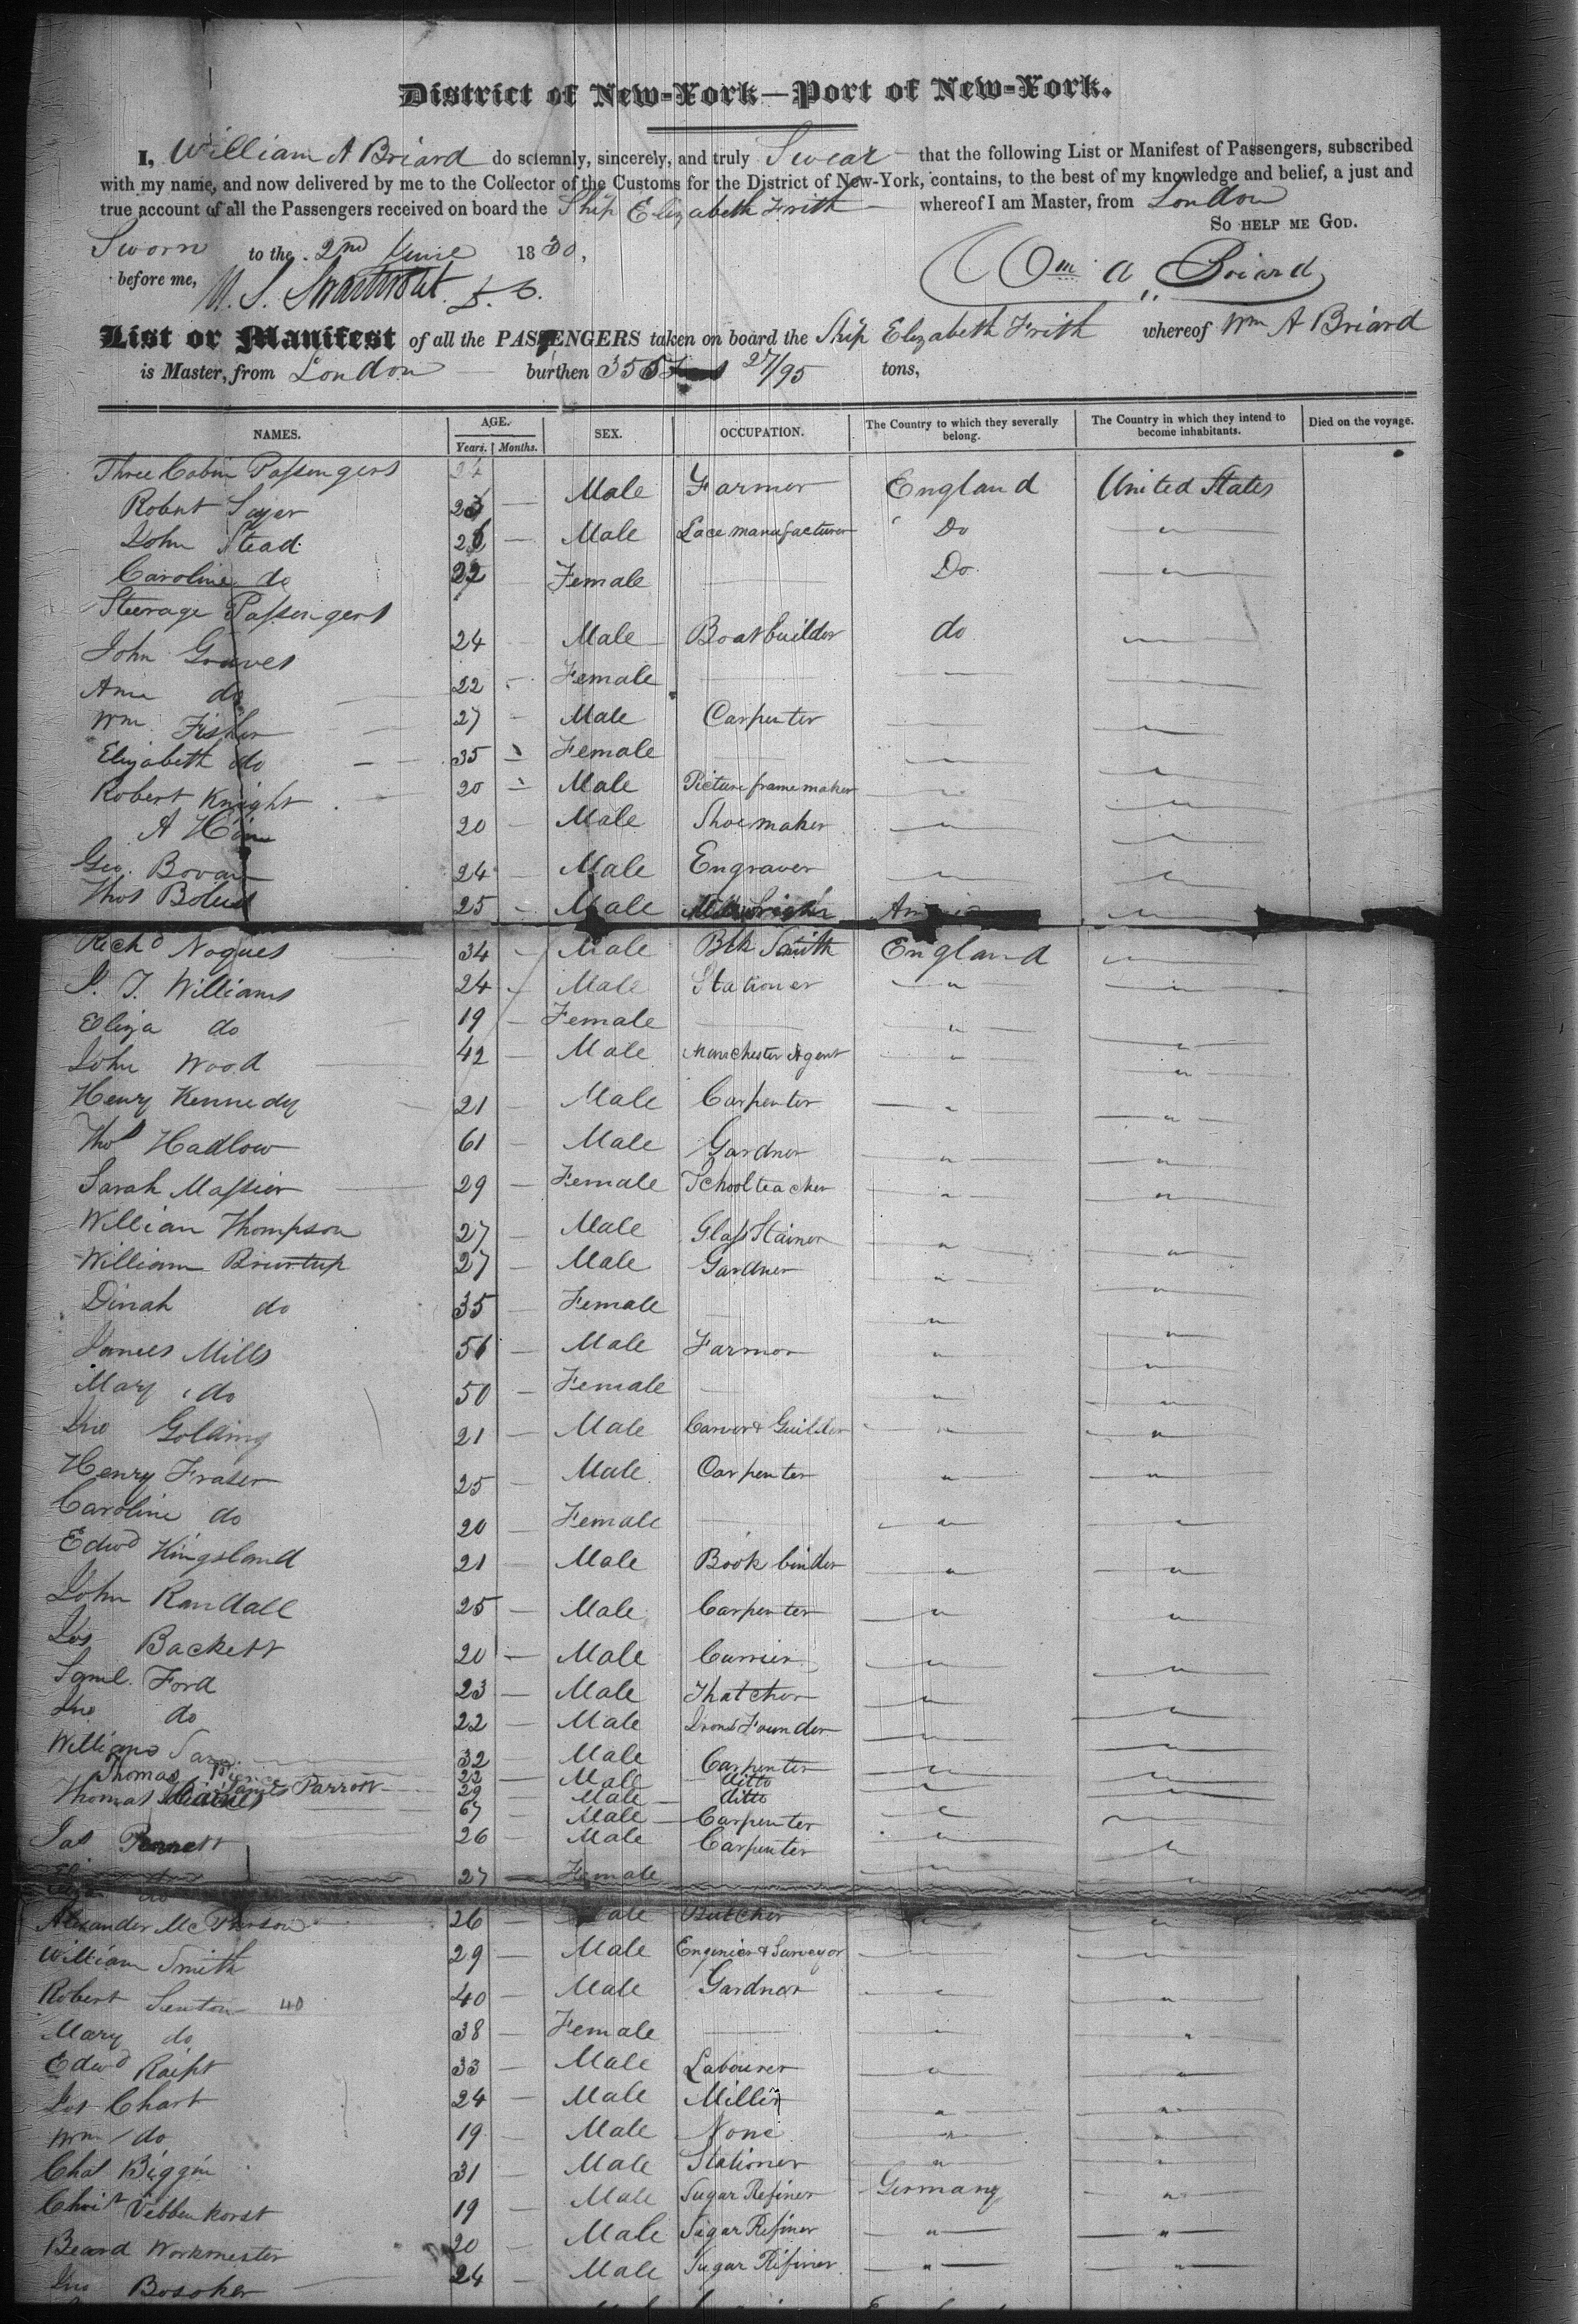 District of New-York—Port of New-York.
I, William A Briard do solemnly, sincerely, and truly Swear that the following List or Manifest of Passengers, subscribed
with my name, and now delivered by me to the Collector of the Customs for the District of New-York, contains, to the best of my knowledge and belief, a just and
true account of all the Passengers received on board the Ship Elizabeth Frith whereof I am Master, from London
So help me God.
Sworn to the 2nd June 1830,
before me,
Wm A Briard
List or Manifest of all the PASSENGERS taken on board the Ship Elizabeth Frith whereof Wm A Briard
is Master, from London burthen 355 27/95 tons,
NAMES. AGE. SEX. OCCUPATION. The Country to which they severally belong. The Country in which they intend to become inhabitants. Died on the voyage.
Years. Months.
Three Cabin Passengers
Robert Sayer 23 — Male Farmer England United States
John Stead 26 — Male Lace manufacturer Do "
Caroline do 22 Female Do "
Steerage Passengers
John Graves 24 Male Boatbuilder do "
Ann do 22 Female
Wm Fisher 27 Male Carpenter "
Elizabeth do 35 Female "
Robert Knight 20 Male Picture frame maker "
A 20 Male Shoemaker " "
Geo. Bovan 24 Male Engraver " "
Thos 25 Male "
Richd Noques 34 — Male Blk Smith England "
J. T. Williams 24 Male Stationer " "
Eliza do 19 — Female " "
John Wood 42 — Male Manchester Agent " "
Henry Kennedy 21 — Male Carpenter " "
Thos Hadlow 61 — Male Gardner " "
Sarah Massier 29 — Female Schoolteacher " "
William Thompson 27 Male Glass Stainer " "
William 27 — Male Gardner " "
Dinah do 35 — Female " "
James Mills 51 — Male Farmer " "
Mary do 50 — Female " "
Jno Golding 21 — Male Carver & Guilder " "
Henry Fraser 25 — Male Carpenter " "
Caroline do 20 — Female " "
Edwd Kingsland 21 — Male Book binder " "
John Randall 25 — Male Carpenter " "
Jos Backett 20 — Male Currier " "
Saml. Ford 23 — Male Thatcher " "
Jno do 22 — Male Iron Founder " "
Williams 32 Male Carpenter " "
Thomas 22 — Male ditto " "
James Parrott 29 Male ditto " "
Thomas 67 Male Carpenter "
Jas 26 Male Carpenter " "
do 27 — Female " "
Alexander McPherson 26 — Male Butcher " "
William Smith 29 — Male Enginier & Surveyor " "
Robert 40 40 — Male Gardner " "
Mary do 38 — Female " "
Edwd 33 — Male Labourer " "
Jos Chart 24 — Male Miller " "
Wm do 19 — Male None " "
Chas Biggin 31 — Male Stationer " "
Christ Vebbenkorst 19 — Male Sugar Refiner Germany "
Beard Workmester 20 Male Sugar Refiner " "
Jno Bosoker 24 — Male Sugar Refiner " "